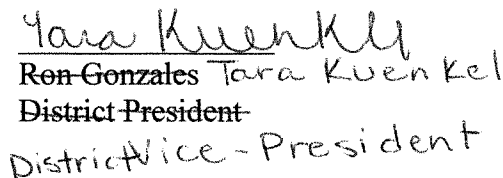 Tara Kuenkel
Ron Gonzales Tara Kuenkel
District President
District Vice-President